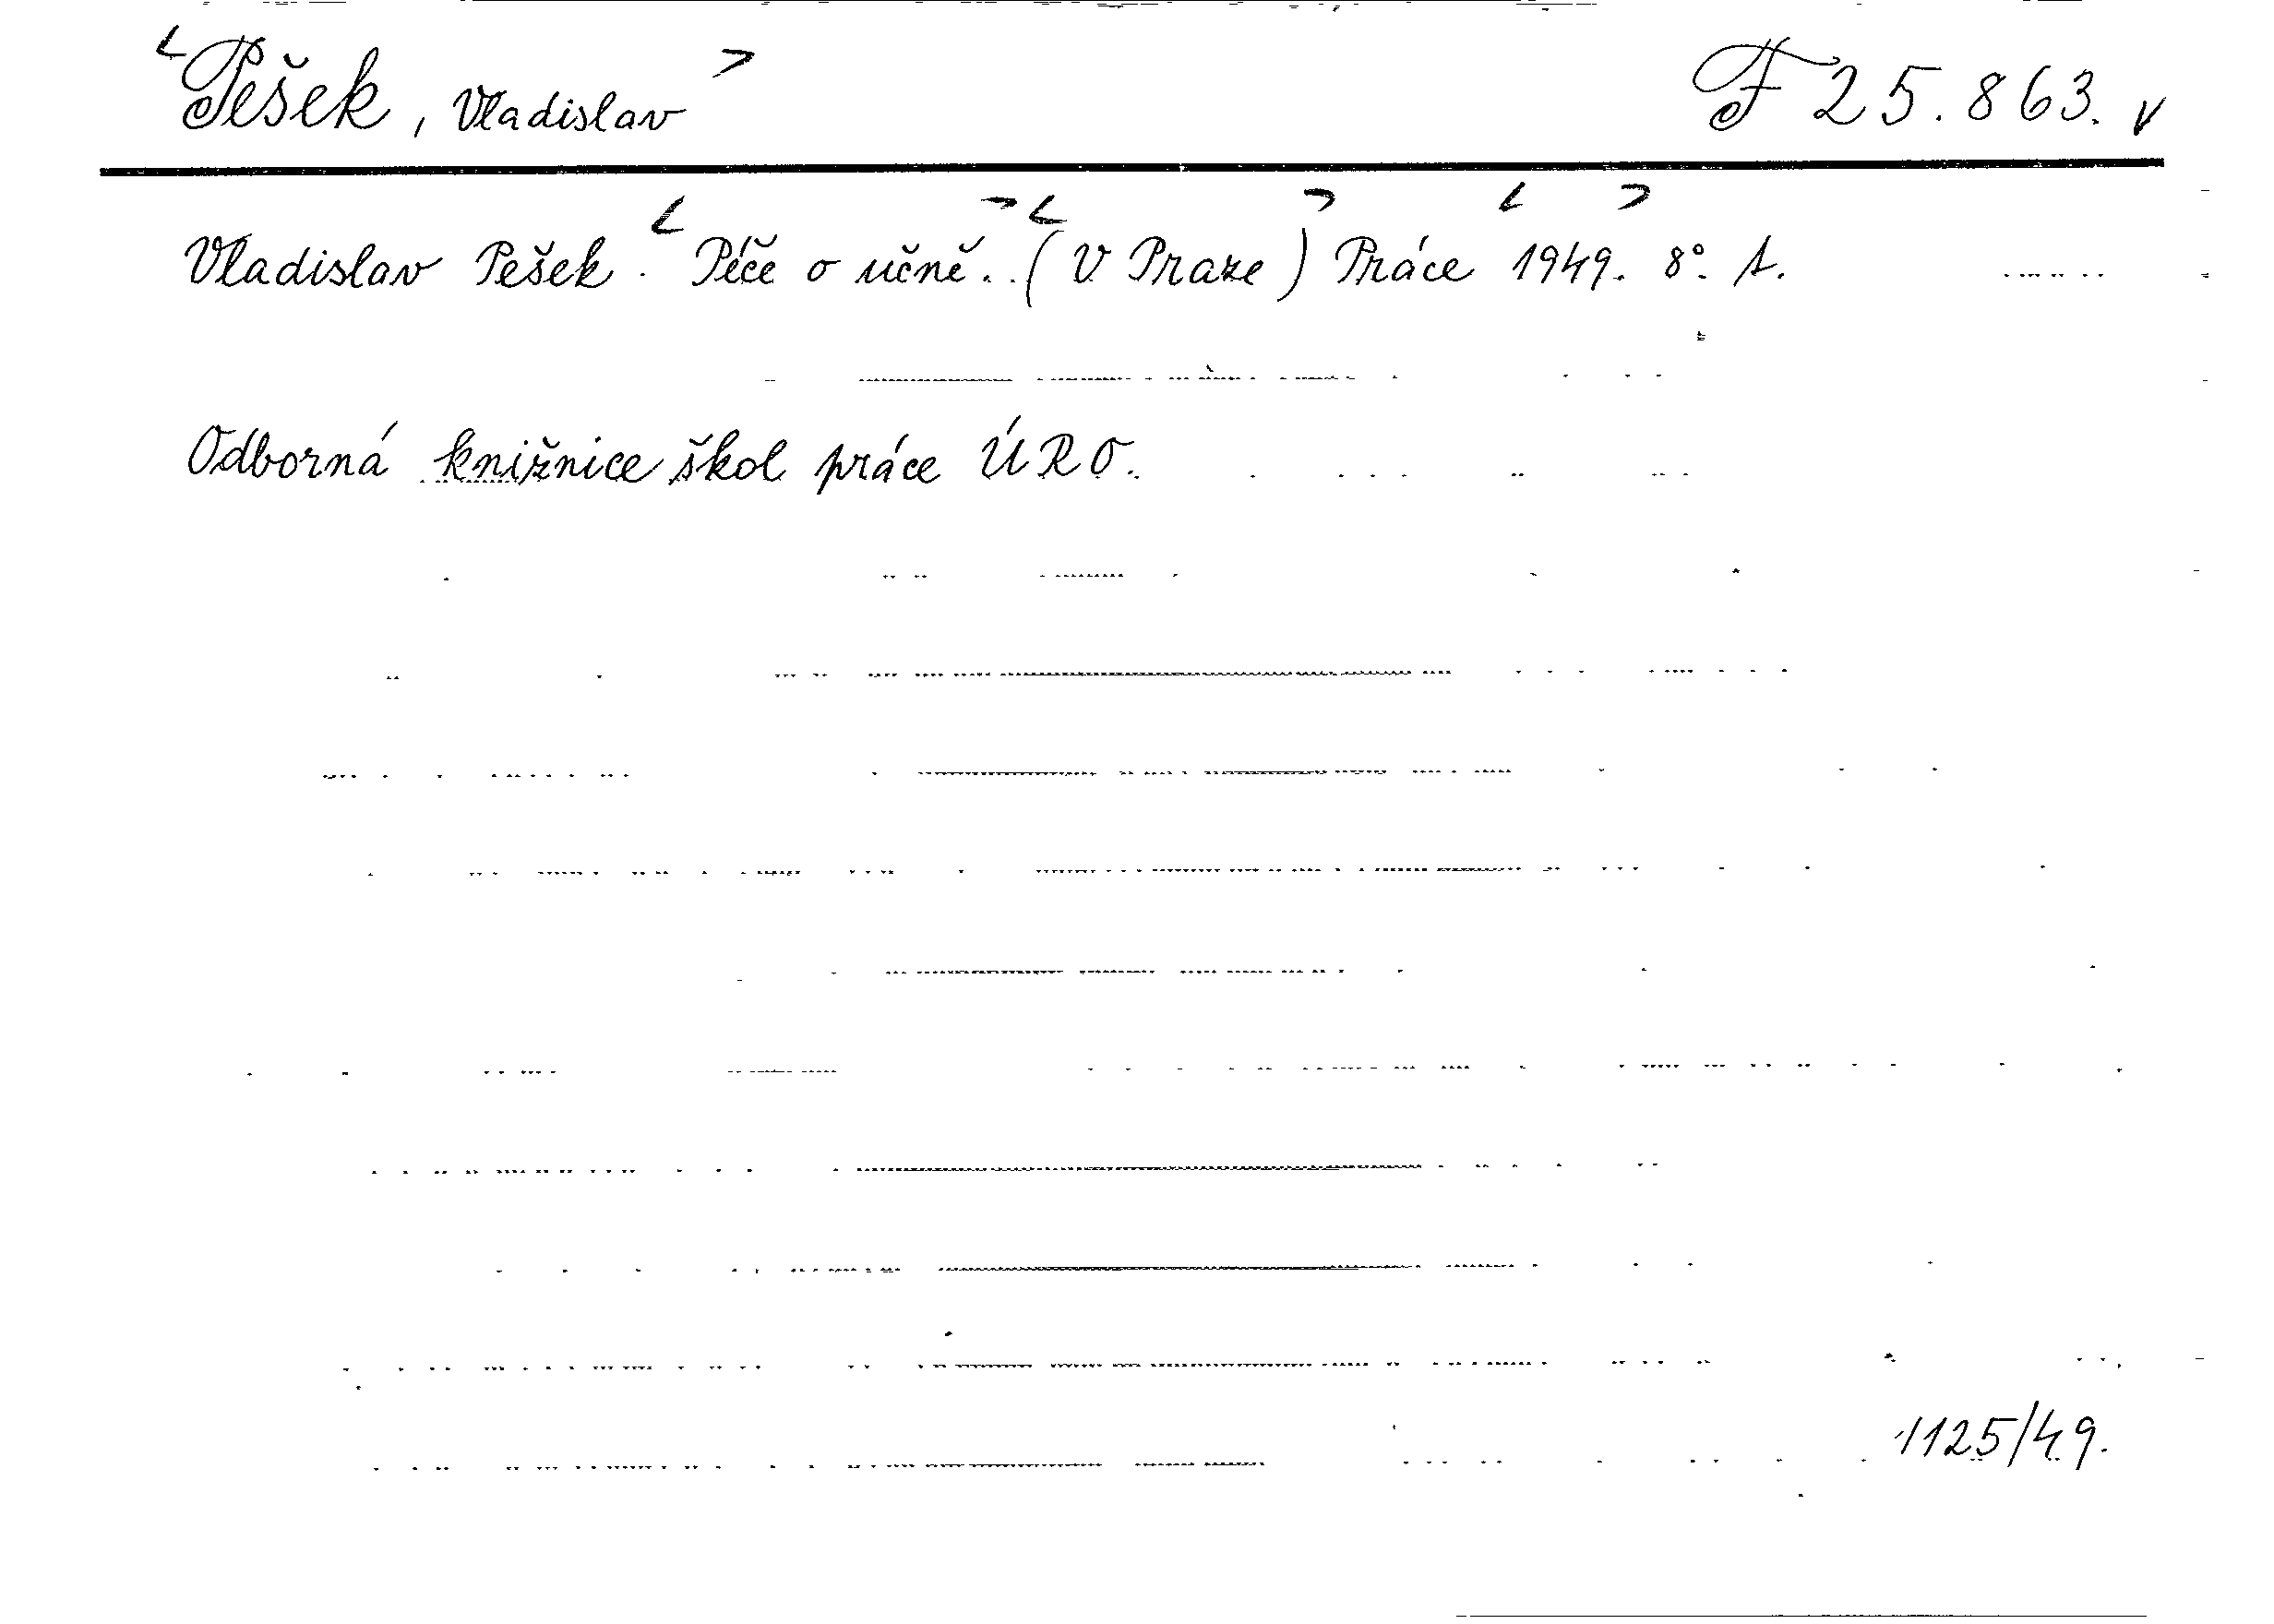 <Pešek, Vladislav> F 25.863. v
Vladislav Pešek. <Péče o učně.> <(V Praze)> Práce <1949.> 8°. s.
Odborná knižnice škol práce ÚRO.
1125/49.